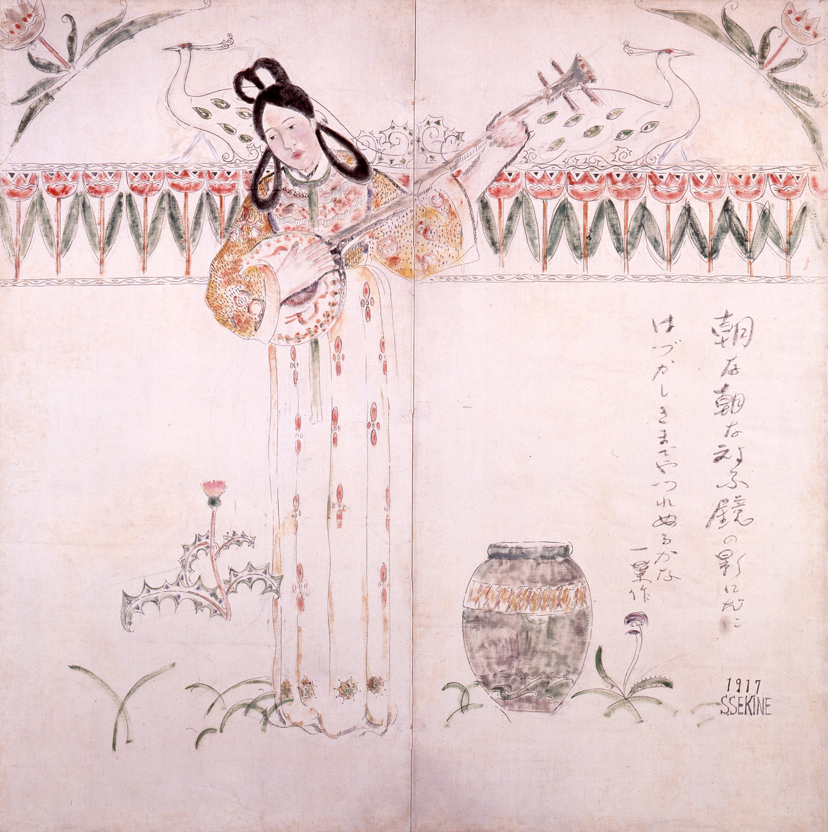 朝な朝な対ふ鏡の影にだに
はづかしきまでやつれぬるかな
一葉作
1917
SSEKINE